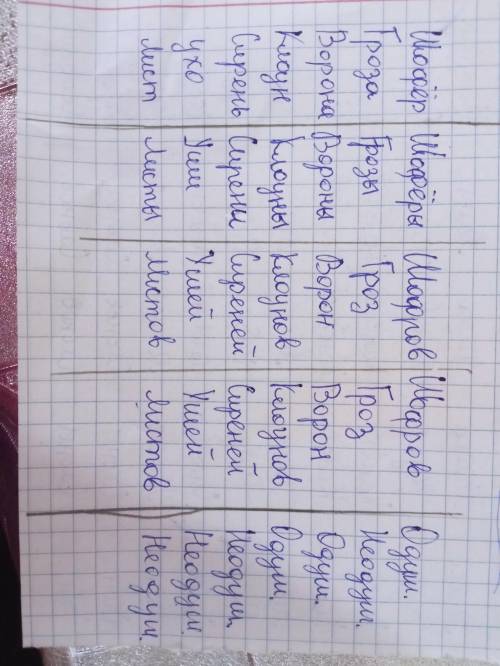 Шофёр Шофёры Шофров Шофров Одуш.
Гроза Грозы Гроз Гроз Неодуш.
Ворона Вороны Ворон Ворон Одуш.
Клоун Клоуны Клоунов Клоунов Одуш.
Сирень Сирени Сиреней Сиреней Неодуш.
Ухо Уши Ушей Ушей Неодуш.
Лист Листы Листов Листов Неодуш.